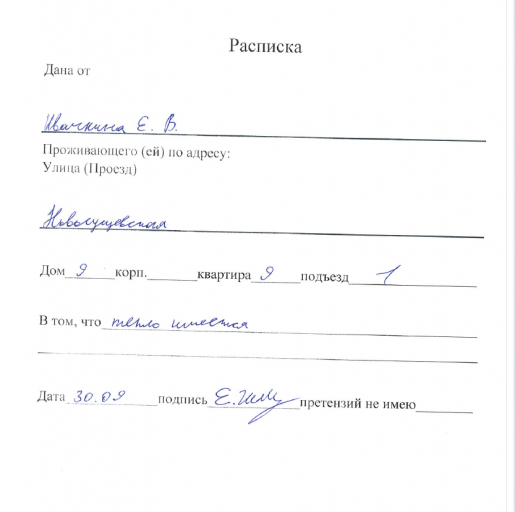 Расписка
Дана от
Ивачкина Е. В.
Проживающего (ей) по адресу:
Улица (Проезд)
Новосущевская
Дом 9 корп.________квартира 9 подъезд 1
В том, что тепло имеется
Дата 30.09 подпись Е. претензий не имею________